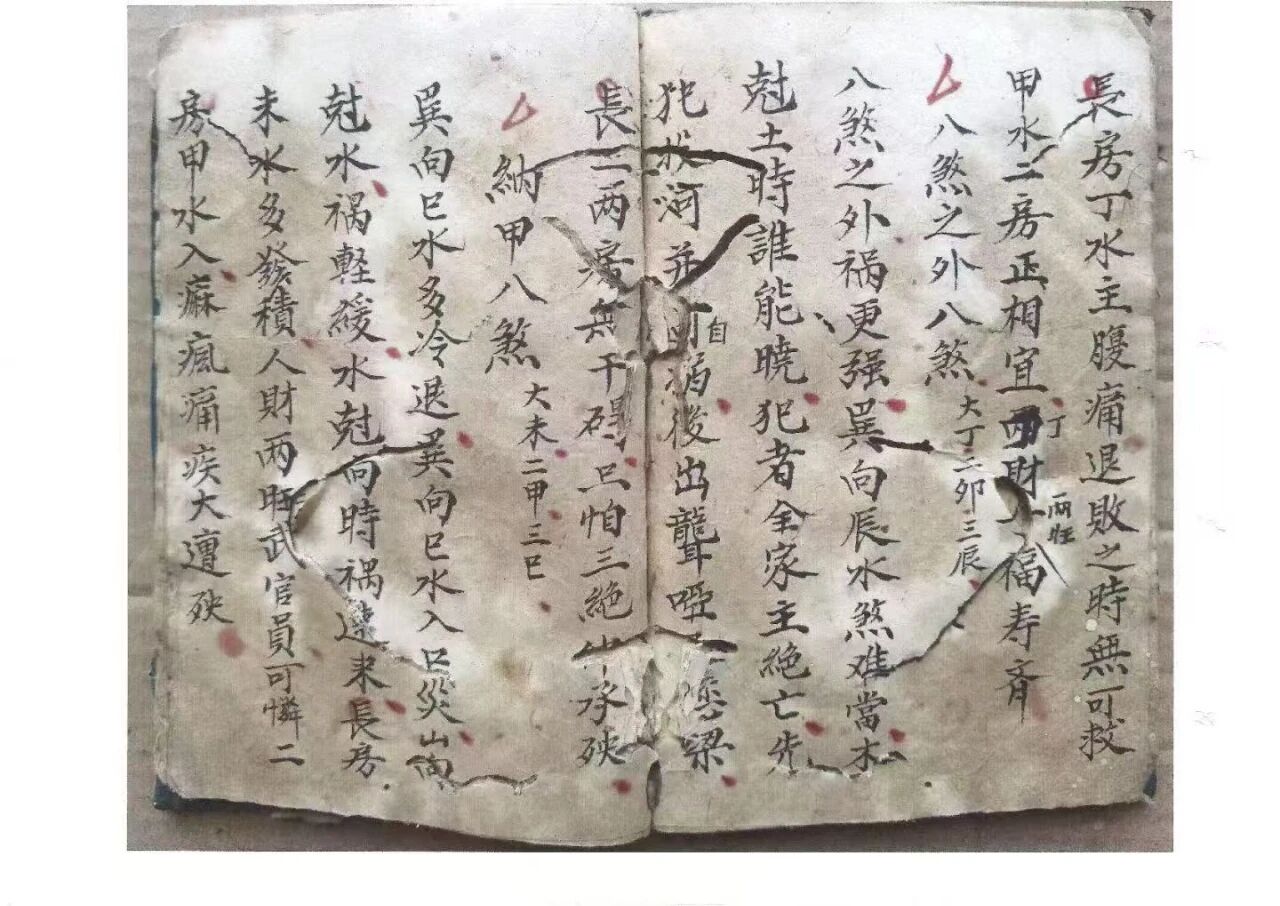 長房丁水主腹痛退敗之時無可救
甲水二房正相宜丁財兩旺福寿齐
八煞之外八煞 大丁二卯三辰
八煞之外祸更强巽向辰水煞难當木
尅土時誰能曉犯者全家主絶亡先
犯投河并自縊後出聾啞
長二两房無干碍只怕三絶承殃
納甲八煞 大未二甲三巳
巽向巳水多冷退巽向巳水入口災山向
尅水祸軽緩水尅向時祸速来長房
未水多發積人財两旺武官員可憐二
房甲水入痲瘋痛疾大遭殃